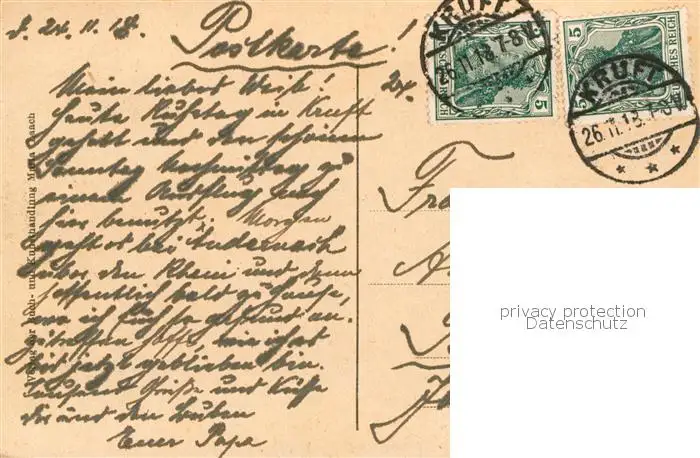 d. 24. 11. 18.
Postkarte!
Mein liebes Weib!
Heute Ruhetag in Kruft
gehalt und den schönen
Sonntag Nachmittag zu
einem Ausflug nach
hier benutzt. Morgen
geht es bei Andernach
über den Rhein und dann
hoffentlich bald zu Hause,
wo ich Euch so gesund an-
zutreffen hoffe, wie ich es
bis jetzt geblieben bin.
Tausend Grüße und Küsse
Dir und den Buben
Euer Papa
24.
KRUFT
26.11.18.7-8V.
5
5
DEUTSCHES REICH
KRUFT
26.11.18.7-8V.
Verlag der Buch- und Kunsthandlung Maria Laach
privacy protection
Datenschutz